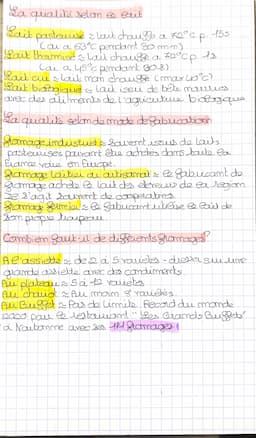 La qualité selon le lait
Lait pasteurisé = lait chauffé à 72°C p. 15s
(ou à 63°C pendant 30 min)
Lait thermisé = lait chauffé à 70°C p. 1s
(ou à 45°C pendant 30 s)
Lait cru = lait non chauffé (max 40°C)
Lait biologique = lait issu de bêtes nourries
avec des aliments de l'agriculture biologique
La qualité selon le mode de fabrication
Fromage industriel = Souvent issus de laits
pasteurisés pouvant être achetés dans toute la
France voire en Europe.
Fromage laitier ou artisanal = le fabricant de
fromage achète le lait des éleveurs de sa région
Il s'agit souvent de coopératives.
Fromage fermier = le fabricant utilise le lait de
son propre troupeau
Combien faut-il de différents fromages?
A l'assiette = de 2 à 5 variétés - dressé sur une
grande assiette avec des condiments.
Au plateau = 5 à 12 variétés
Au chariot = Au moins 8 variétés
Au Buffet = Pas de limite. Record du monde
par le restaurant "Les Grands Buffets"
à Narbonne avec ses 111 fromages!